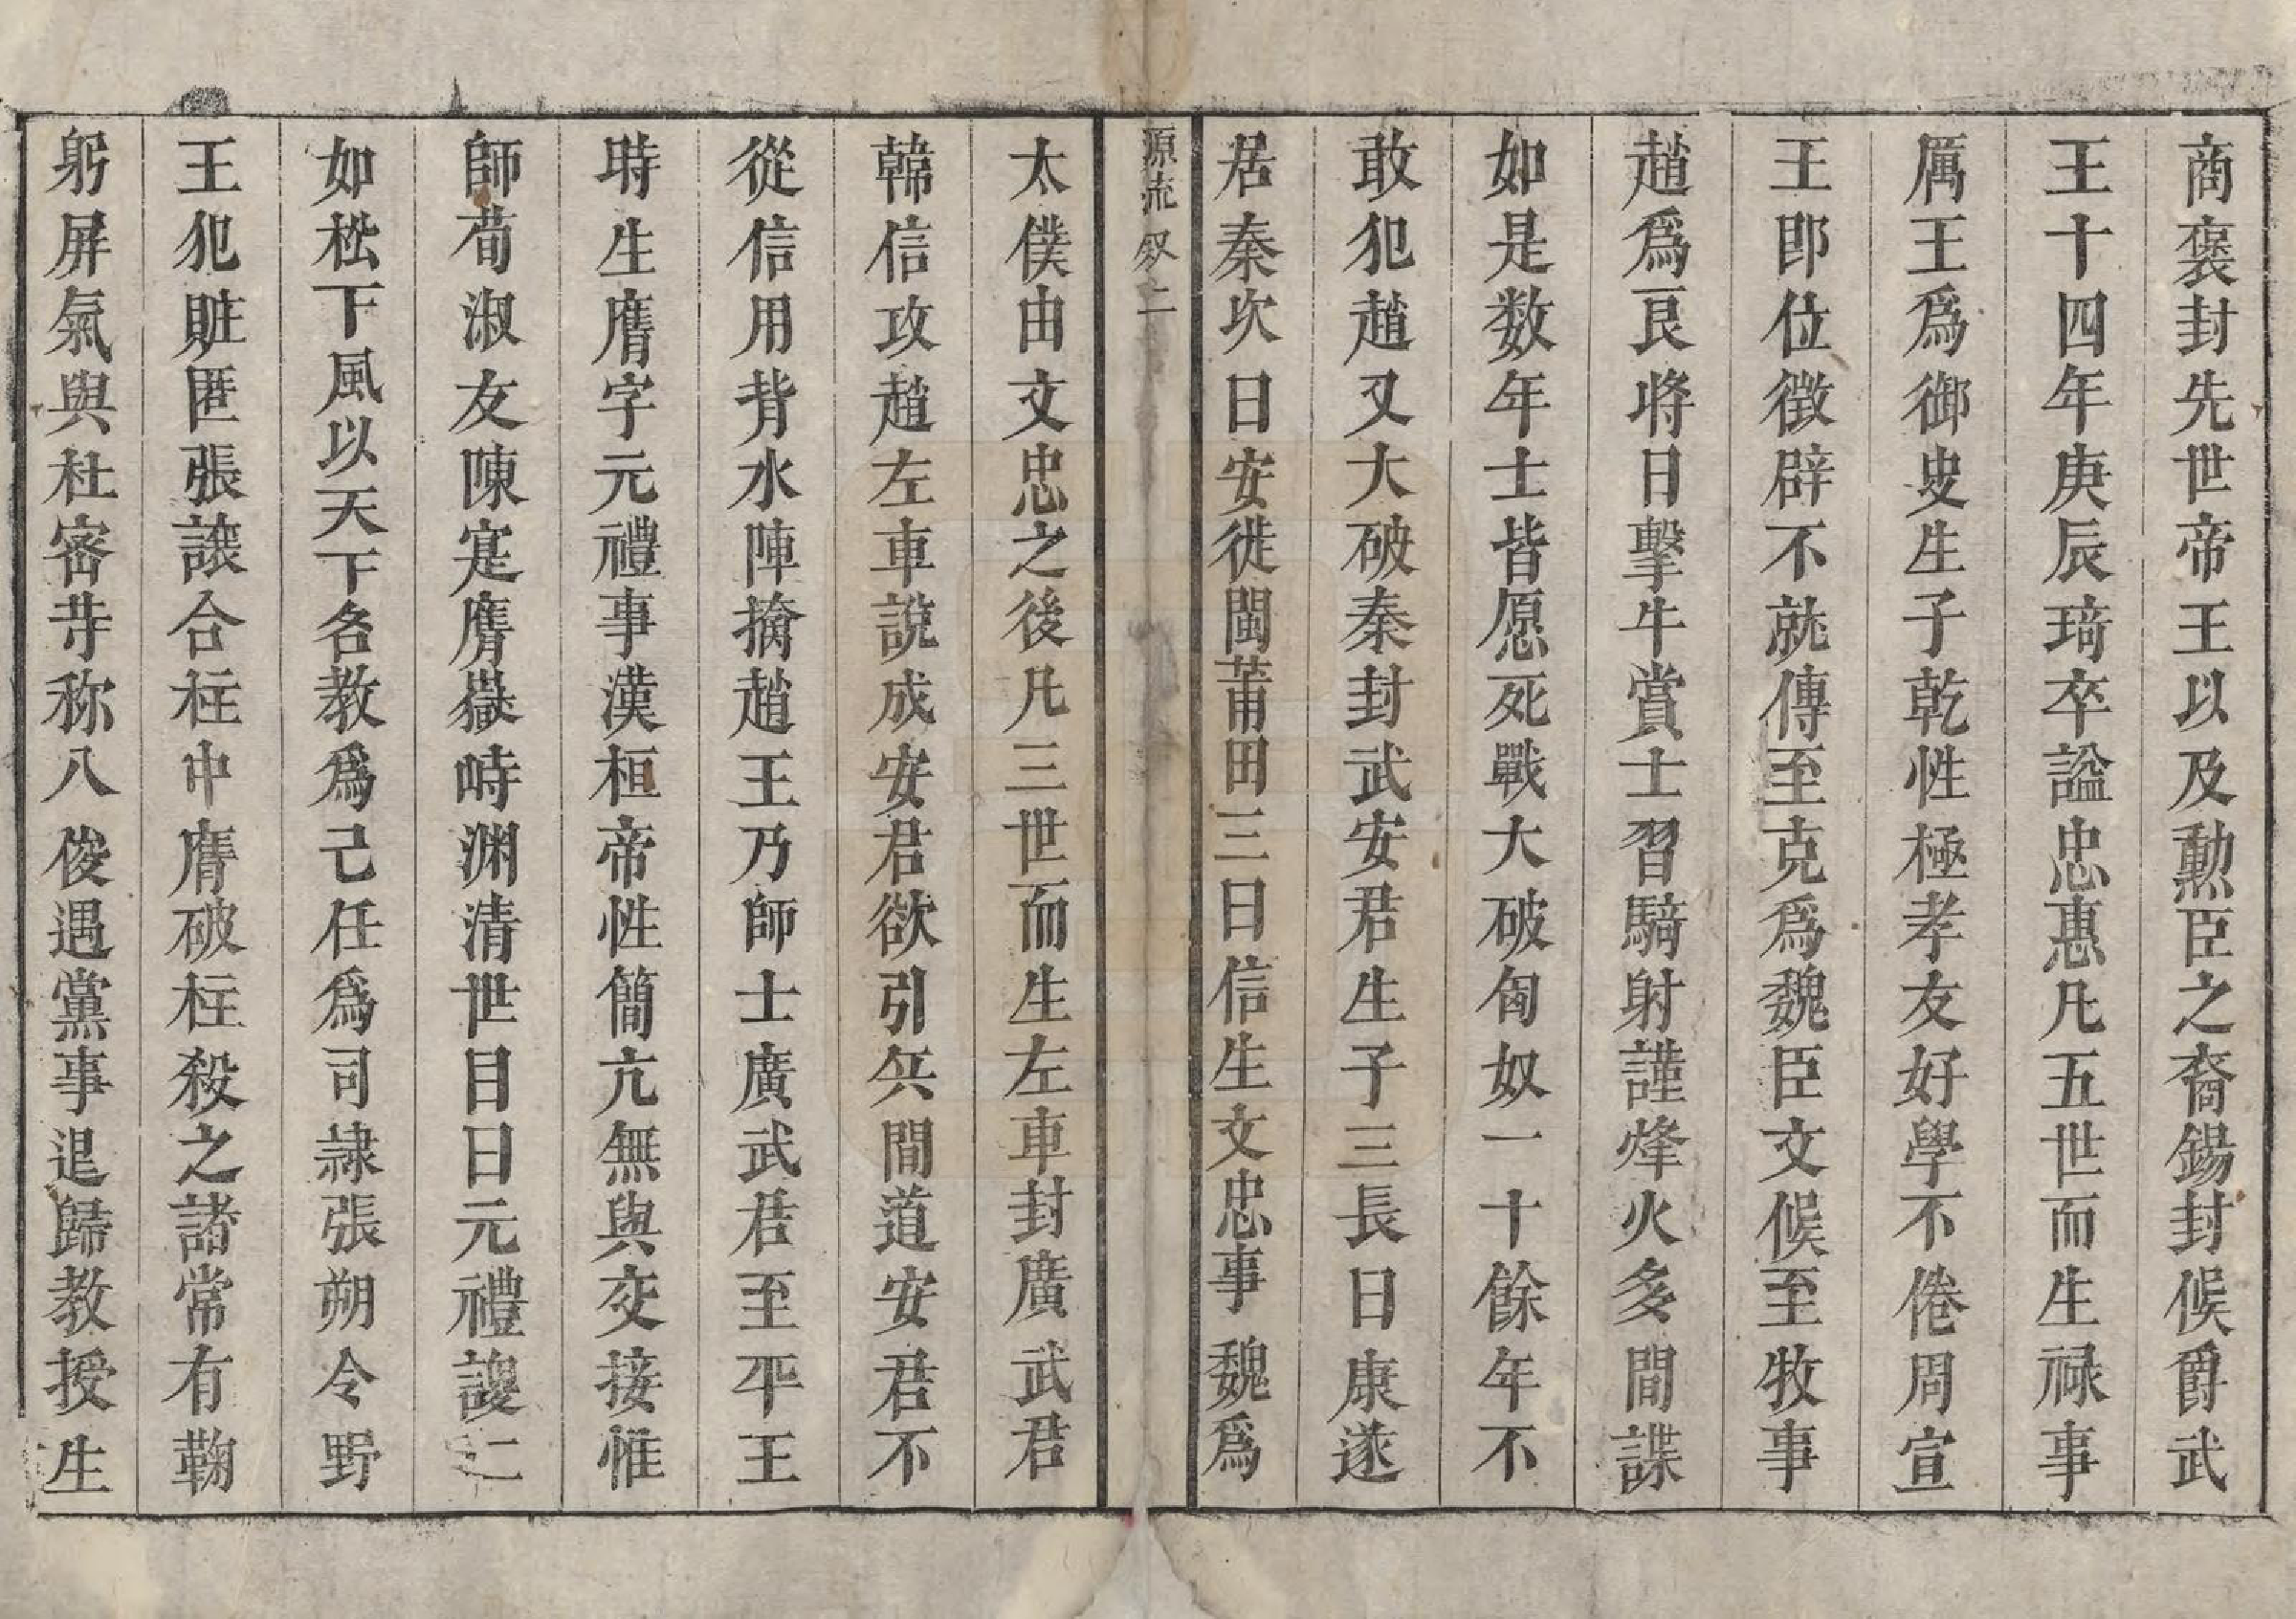 商褒封先世帝王以及勳臣之裔錫封候爵武
王十四年庚辰琦卒謚忠惠凡五世而生禄事
厲王爲御史生子乾性極孝友好學不倦周宣
王即位徵辟不就傳至克爲魏臣文候至牧事
趙爲良將日擊牛賞士習騎射謹烽火多間諜
如是数年士皆愿死戰大破匈奴一十餘年不
敢犯趙又大破秦封武安君生子三長曰康遂
居秦次曰安徙閩莆田三曰信生文忠事魏爲
源流 二
太僕由文忠之後凡三世而生左車封廣武君
韓信攻趙左車説成安君欲引兵間道安君不
從信用背水陣擒趙王乃師士廣武君至平王
時生膺字元禮事漢桓帝性簡亢無與交接惟
師荀淑友陳寔膺嶽峙渊清世目曰元禮謖二
如松下風以天下名教爲己任爲司隷張朔令野
王犯賍匿張讓合柱中膺破柱殺之諸常有鞠
躬屏氣與杜密苛称八俊遇黨事退歸教授生